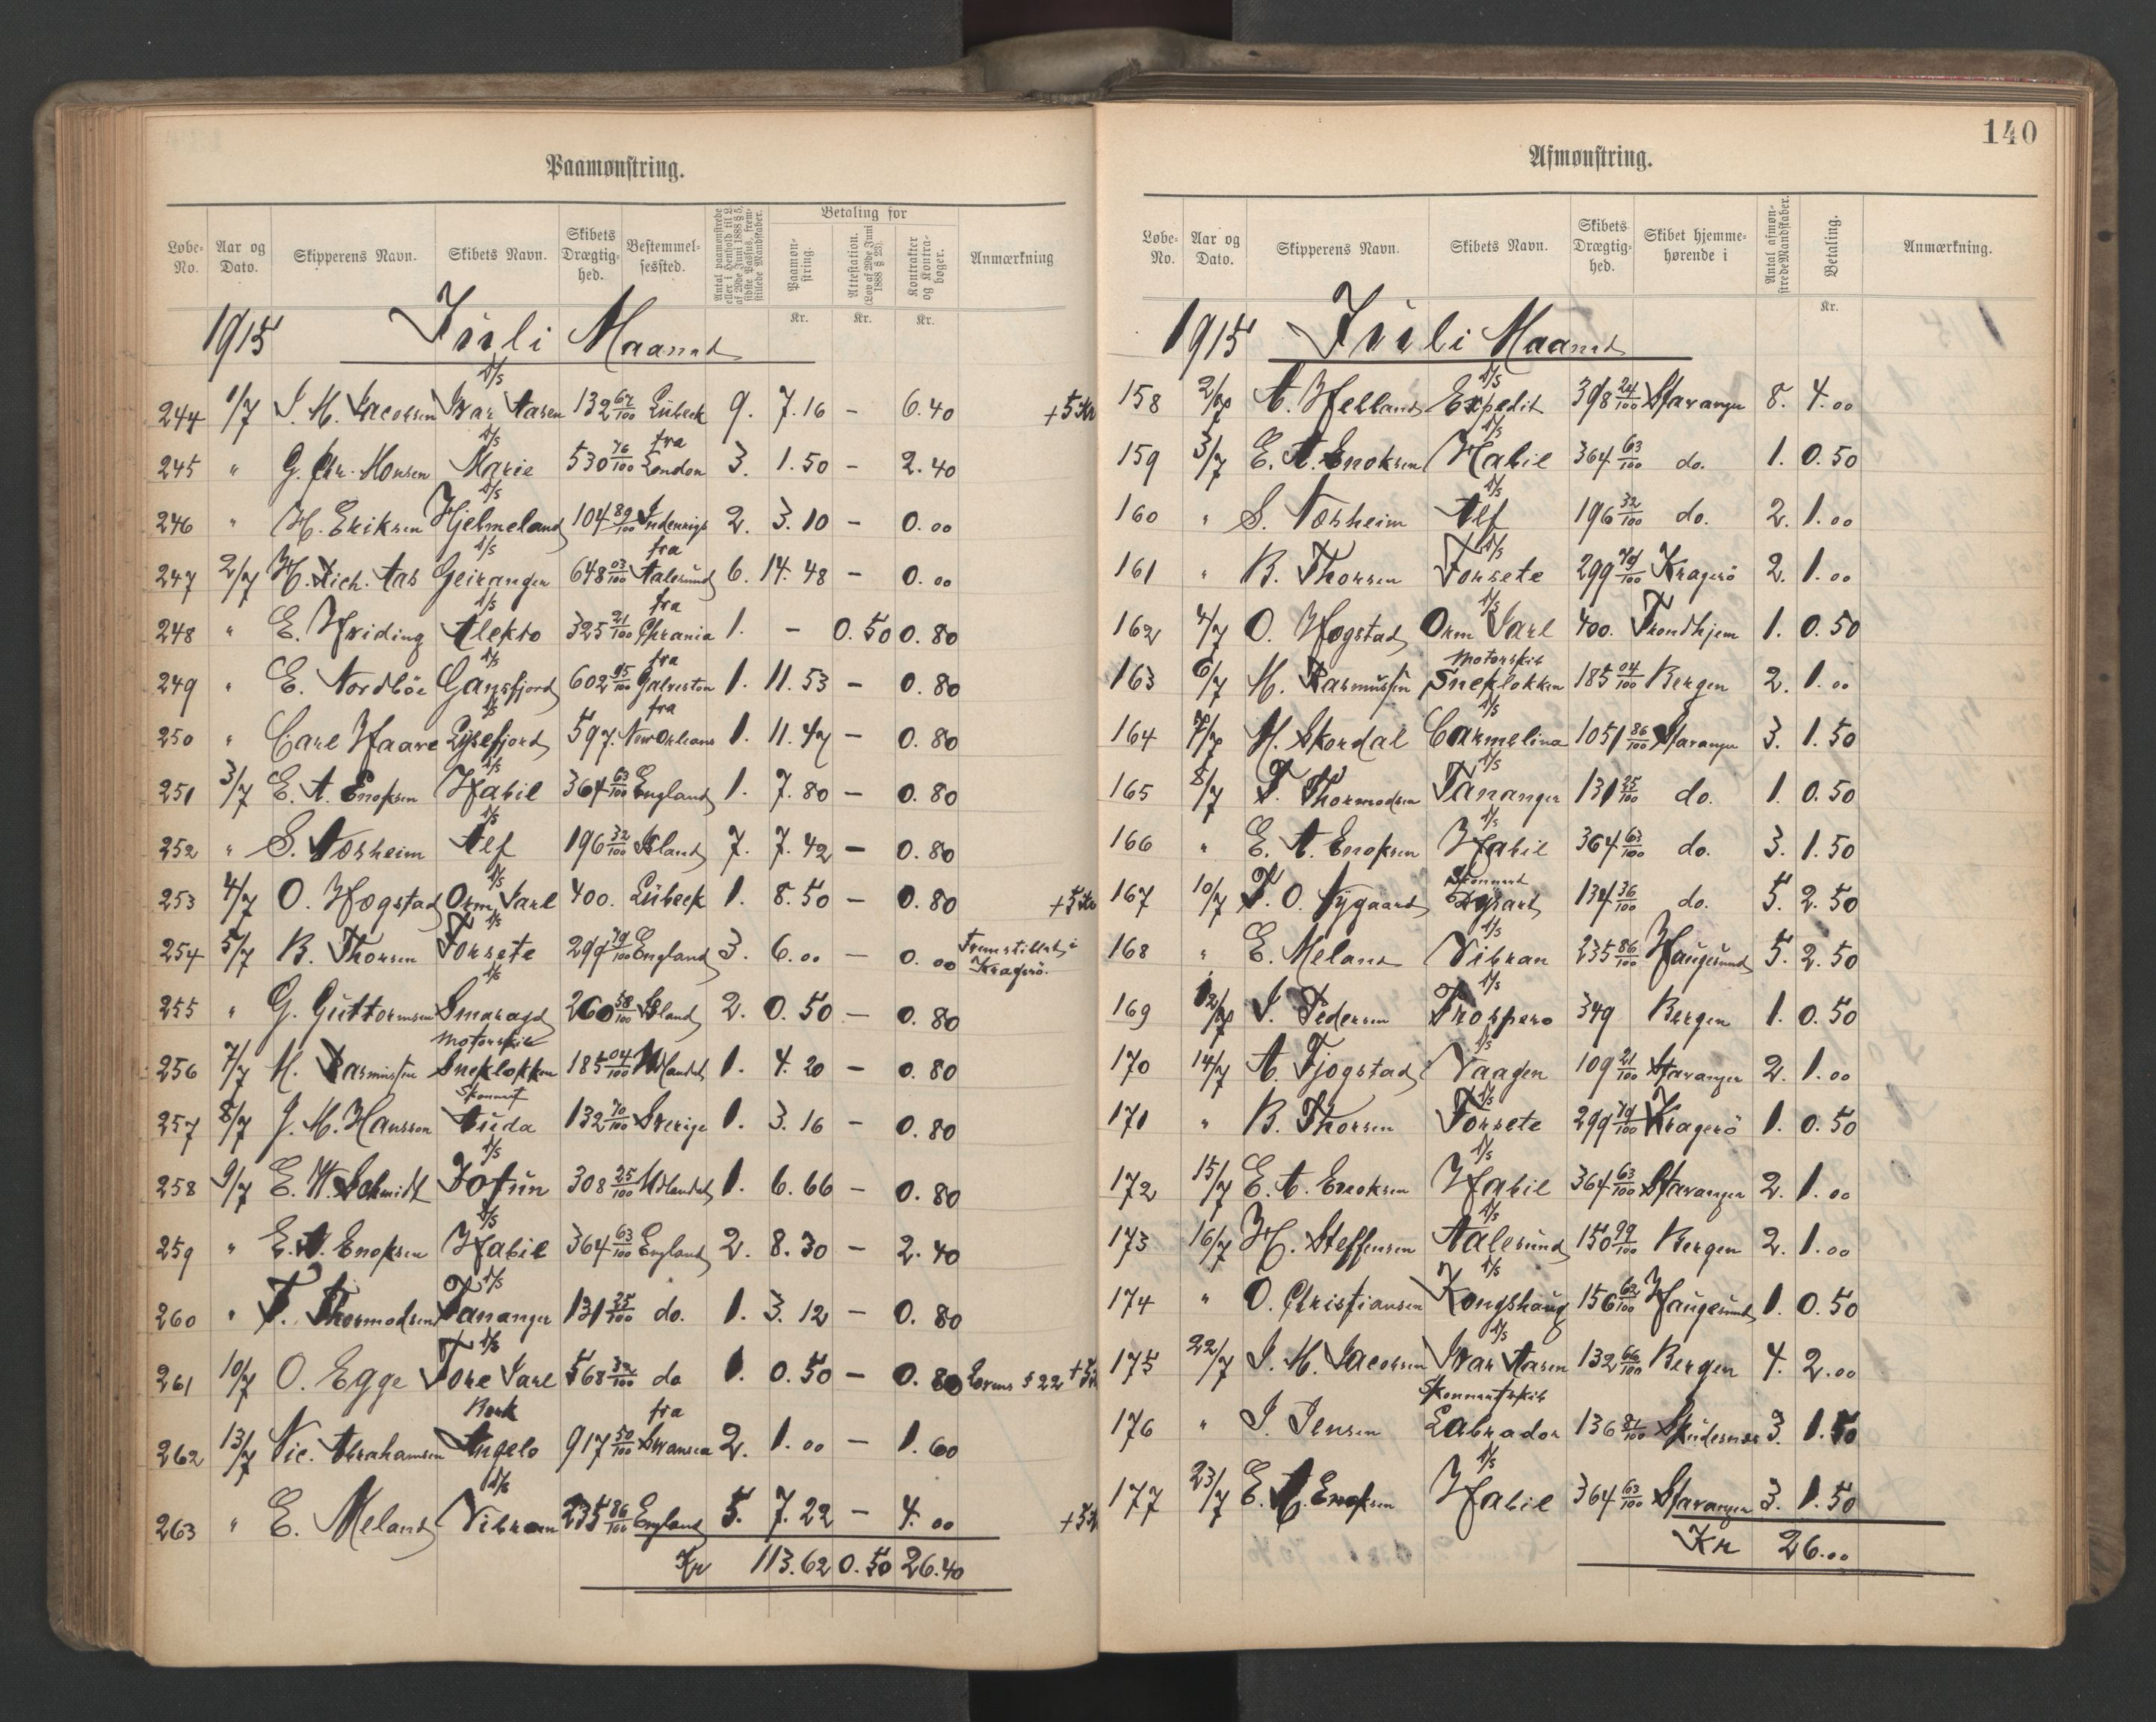 Paamønstring.
Løbe-No. Aar og Dato. Skipperens Navn. Skibets Navn. Skibets Drægtig-hed. Bestemmel-sessted. Antal paamønstrede eller i Henhold til L. af 29de Juni 1888 § 5, sidste Passus, frem-stillede Mandskaber. Betaling for Paamøn-string. Attestation. (Lov af 29de Juni 1888 § 23). Kontrakter og Kontra-bøger. Anmærkning
Kr. Kr. Kr.
1915 Juli Maaned
244 1/7 J. M. Jacobsen D/S Ivar Aasen 132 67/100 Lübeck 9. 7.16 – 6.40 + 5 Kr
245 " G. Chr. Monsen D/S Marie 530 76/100 fra London 3. 1.50 – 2.40
246 " H. Eriksen D/S Hjelmeland 104 89/100 Indenrigs 2. 3.10 – 0.00
247 2/7 H. Rich. Aas D/S Geiranger 648 03/100 fra Aalesund 6. 14.48 – 0.00
248 " E. Hriding D/S Alekto 325 21/100 fra Chrania 1. – 0.50 0.80
249 " E. Nordböe D/S Gansfjord 602 95/100 fra Galveston 1. 11.53 – 0.80
250 " Carl Haave D/S Lysefjord 597. fra New Orleans 1. 11.47 – 0.80
251 3/7 E. A. Enoksen D/S Habil 364 63/100 England 1. 7.80 – 0.80
252 " S. Nosheim D/S Alf 196 32/100 Island 7. 7.42 – 0.80
253 4/7 O. Hogstad D/S Orm Jarl 400. Lübeck 1. 8.50 – 0.80 + 5 Kr
254 5/7 B. Thorsen D/S Forsete 299 79/100 England 3. 6.00 – 0.00 Fremstillet i Kragerö.
255 " G. Guttormsen D/S Smaragd 260 58/100 Island 2. 0.50 – 0.80
256 7/7 M. Rasmussen Motorskib Sneklokken 185 04/100 Udlandet 1. 4.20 – 0.80
257 8/7 J. M. Hansson Skonnert Auda 132 70/100 Sverige 1. 3.16 – 0.80
258 9/7 E. W. Schmidt D/S Jotun 308 25/100 Udlandet 1. 6.66 – 0.80
259 " E. A. Enoksen D/S Habil 364 63/100 England 2. 8.30 – 2.40
260 " T. Thormodsen D/S Tananger 131 25/100 do. 1. 3.12 – 0.80
261 10/7 O. Egge D/S Tore Jarl 568 32/100 do 1. 0.50 – 0.80 Lovens § 22 + 5 K
262 13/7 Nic. Abrahamsen Bark Angelo 917 50/100 fra Swansea 2. 1.00 – 1.60
263 " E. Meland D/S Vibran 235 86/100 England 5. 7.22 – 4.00 + 5 K
Kr 113.62 0.50 26.40
140
Afmønstring.
Løbe-No. Aar og Dato. Skipperens Navn. Skibets Navn. Skibets Drægtig-hed. Skibet hjemme-hørende i Antal afmøn-strede Mandskaber. Betaling. Anmærkning.
Kr.
1915 Juli Maaned
158 2/7 A. Helland D/S Expedit 398 24/100 Stavanger 8. 4.00
159 3/7 E. A. Enoksen D/S Habil 364 63/100 do. 1. 0.50
160 " S. Nosheim D/S Alf 196 32/100 do. 2. 1.00
161 " B. Thorsen D/S Forsete 299 79/100 Kragerö 2. 1.00
162 4/7 O. Hogstad D/S Orm Jarl 400. Trondhjem 1. 0.50
163 6/7 M. Rasmussen Motorskib Sneklokken 185 04/100 Bergen 2. 1.00
164 7/7 M. Skordal D/S Carmelina 1051 86/100 Stavanger 3. 1.50
165 8/7 T. Thormodsen D/S Tananger 131 25/100 do. 1. 0.50
166 " E. A. Enoksen D/S Habil 364 63/100 do. 3. 1.50
167 10/7 T. O. Nygaard Skonnert 134 36/100 do. 5. 2.50
168 " E. Meland D/S Vibran 235 86/100 Haugesund 5. 2.50
169 12/7 J. Pedersen D/S Prospero 349 Bergen 1. 0.50
170 14/7 A. Fjogstad D/S Vaagen 109 21/100 Stavanger 2. 1.00
171 " B. Thorsen D/S Forsete 299 79/100 Kragerö 1. 0.50
172 15/7 E. A. Enoksen D/S Habil 364 63/100 Stavanger 2. 1.00
173 16/7 H. Steffensen D/S Aalesund 150 99/100 Bergen 2. 1.00
174 " O. Christiansen D/S Kongshaug 156 62/100 Haugesund 1. 0.50
175 22/7 J. M. Jacobsen D/S Ivar Aasen 132 66/100 Bergen 4. 2.00
176 " J. Jensen Skonnertskib Labrador 136 81/100 Skudesnes 3. 1.50
177 23/7 E. A. Enoksen D/S Habil 364 63/100 Stavanger 3. 1.50
Kr 26.00